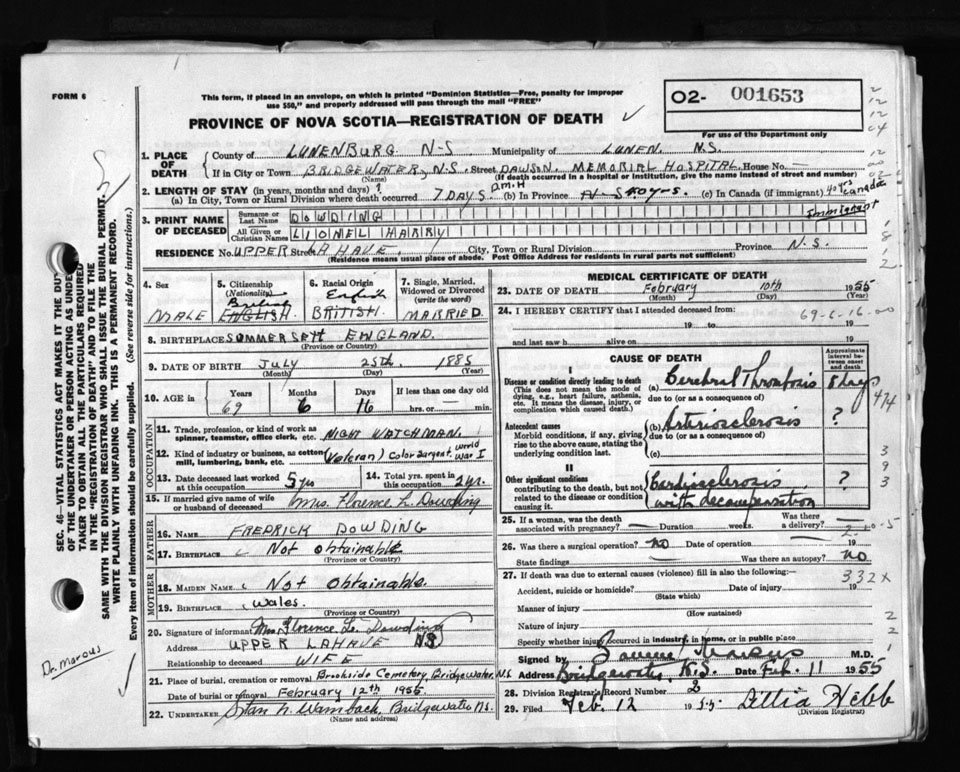 FORM 6
This form, if placed in an envelope, on which is printed "Dominion Statistics—Free, penalty for improper
use $50," and properly addressed will pass through the mail "FREE"
02- 001653
For use of the Department only
PROVINCE OF NOVA SCOTIA—REGISTRATION OF DEATH
1. PLACE OF DEATH
County of LUNENBURG N-S Municipality of LUNEN. N.S.
If in City or Town BRIDGEWATER, N.S. Street DAWSON MEMORIAL HOSPITAL House No. —
(Name) (If death occurred in a hospital or institution, give the name instead of street and number)
2. LENGTH OF STAY (in years, months and days)
(a) In City, Town or Rural Division where death occurred 7 DAYS D.M.H (b) In Province N-S 40 y-s. (c) In Canada (if immigrant) 40 yrs Canada
Immigrant
3. PRINT NAME OF DECEASED
Surname or Last Name DOWDING
All Given or Christian Names LIONEL HARRY
RESIDENCE No. UPPER Street LAHAVE City, Town or Rural Division Province N.S.
(Residence means usual place of abode. Post Office Address for residents in rural parts not sufficient)
4. Sex MALE
5. Citizenship (Nationality) British ENGLISH.
6. Racial Origin English BRITISH.
7. Single, Married, Widowed or Divorced (write the word) MARRIED.
8. BIRTHPLACE SOMMERSETT ENGLAND.
(Province or Country)
9. DATE OF BIRTH July 25th. 1885
(Month) (Day) (Year)
10. AGE in Years 69 Months 6 Days 16 If less than one day old hrs. or — min.
OCCUPATION
11. Trade, profession, or kind of work as spinner, teamster, office clerk, etc. NIGHT WATCHMAN.
12. Kind of industry or business, as cotton mill, lumbering, bank, etc. (Veteran) Color Sargent. World War I
13. Date deceased last worked at this occupation 5 yrs
14. Total yrs. spent in this occupation 2 yr.
15. If married give name of wife or husband of deceased Mrs. Florence L. Dowding
FATHER
16. Name FREDRICK DOWDING
17. Birthplace Not Obtainable
(Province or Country)
MOTHER
18. Maiden Name Not Obtainable.
19. Birthplace Wales.
(Province or Country)
20. Signature of informant Mrs. Florence L. Dowding
Address UPPER LAHAVE NS
Relationship to deceased WIFE
21. Place of burial, cremation or removal Brookside Cemetery, Bridgewater, N.S.
Date of burial or removal February 12th 1955.
22. UNDERTAKER Stan N. Wamback, Bridgewater Ns.
(Name and address)
MEDICAL CERTIFICATE OF DEATH
23. DATE OF DEATH February 10th 1955
(Month) (Day) (Year)
24. I HEREBY CERTIFY that I attended deceased from:
69-6-16-00
19 to 19
and last saw h alive on 19
CAUSE OF DEATH
Approximate interval between onset and death
I
Disease or condition directly leading to death (a) Cerebral Thrombosis 8 days
(This does not mean the mode of dying, e.g., heart failure, asthenia, etc. It means the disease, injury, or complication which caused death.)
due to (or as a consequence of)
474
Antecedent causes (b) Arteriosclerosis ?
Morbid conditions, if any, giving rise to the above cause, stating the underlying condition last.
due to (or as a consequence of)
(c)
II
Other significant conditions contributing to the death, but not related to the disease or condition causing it.
Cardiosclerosis with decompensation ?
25. If a woman, was the death associated with pregnancy? — Duration weeks. Was there a delivery?
26. Was there a surgical operation? NO Date of operation — 19
State findings — Was there an autopsy? NO
27. If death was due to external causes (violence) fill in also the following:—
332x
Accident, suicide or homicide? Date of injury 19
(State which)
Manner of injury
(How sustained)
Nature of injury
Specify whether injury occurred in industry, in home, or in public place
Signed by Marcus M.D.
Address Bridgewater, N.S. Date Feb. 11 1955
28. Division Registrar's Record Number 2
29. Filed Feb. 12 1955. Lillia Hebb
(Division Registrar)
SEC. 46—VITAL STATISTICS ACT MAKES IT THE DUTY
OF THE UNDERTAKER OR PERSON ACTING AS UNDERTAKER
TO OBTAIN ALL THE PARTICULARS REQUIRED
IN THE "REGISTRATION OF DEATH" AND TO FILE THE
SAME WITH THE DIVISION REGISTRAR WHO SHALL ISSUE THE BURIAL PERMIT.
WRITE PLAINLY WITH UNFADING INK. THIS IS A PERMANENT RECORD.
Every item of information should be carefully supplied. (See reverse side for instructions.)
Dr. Marcus